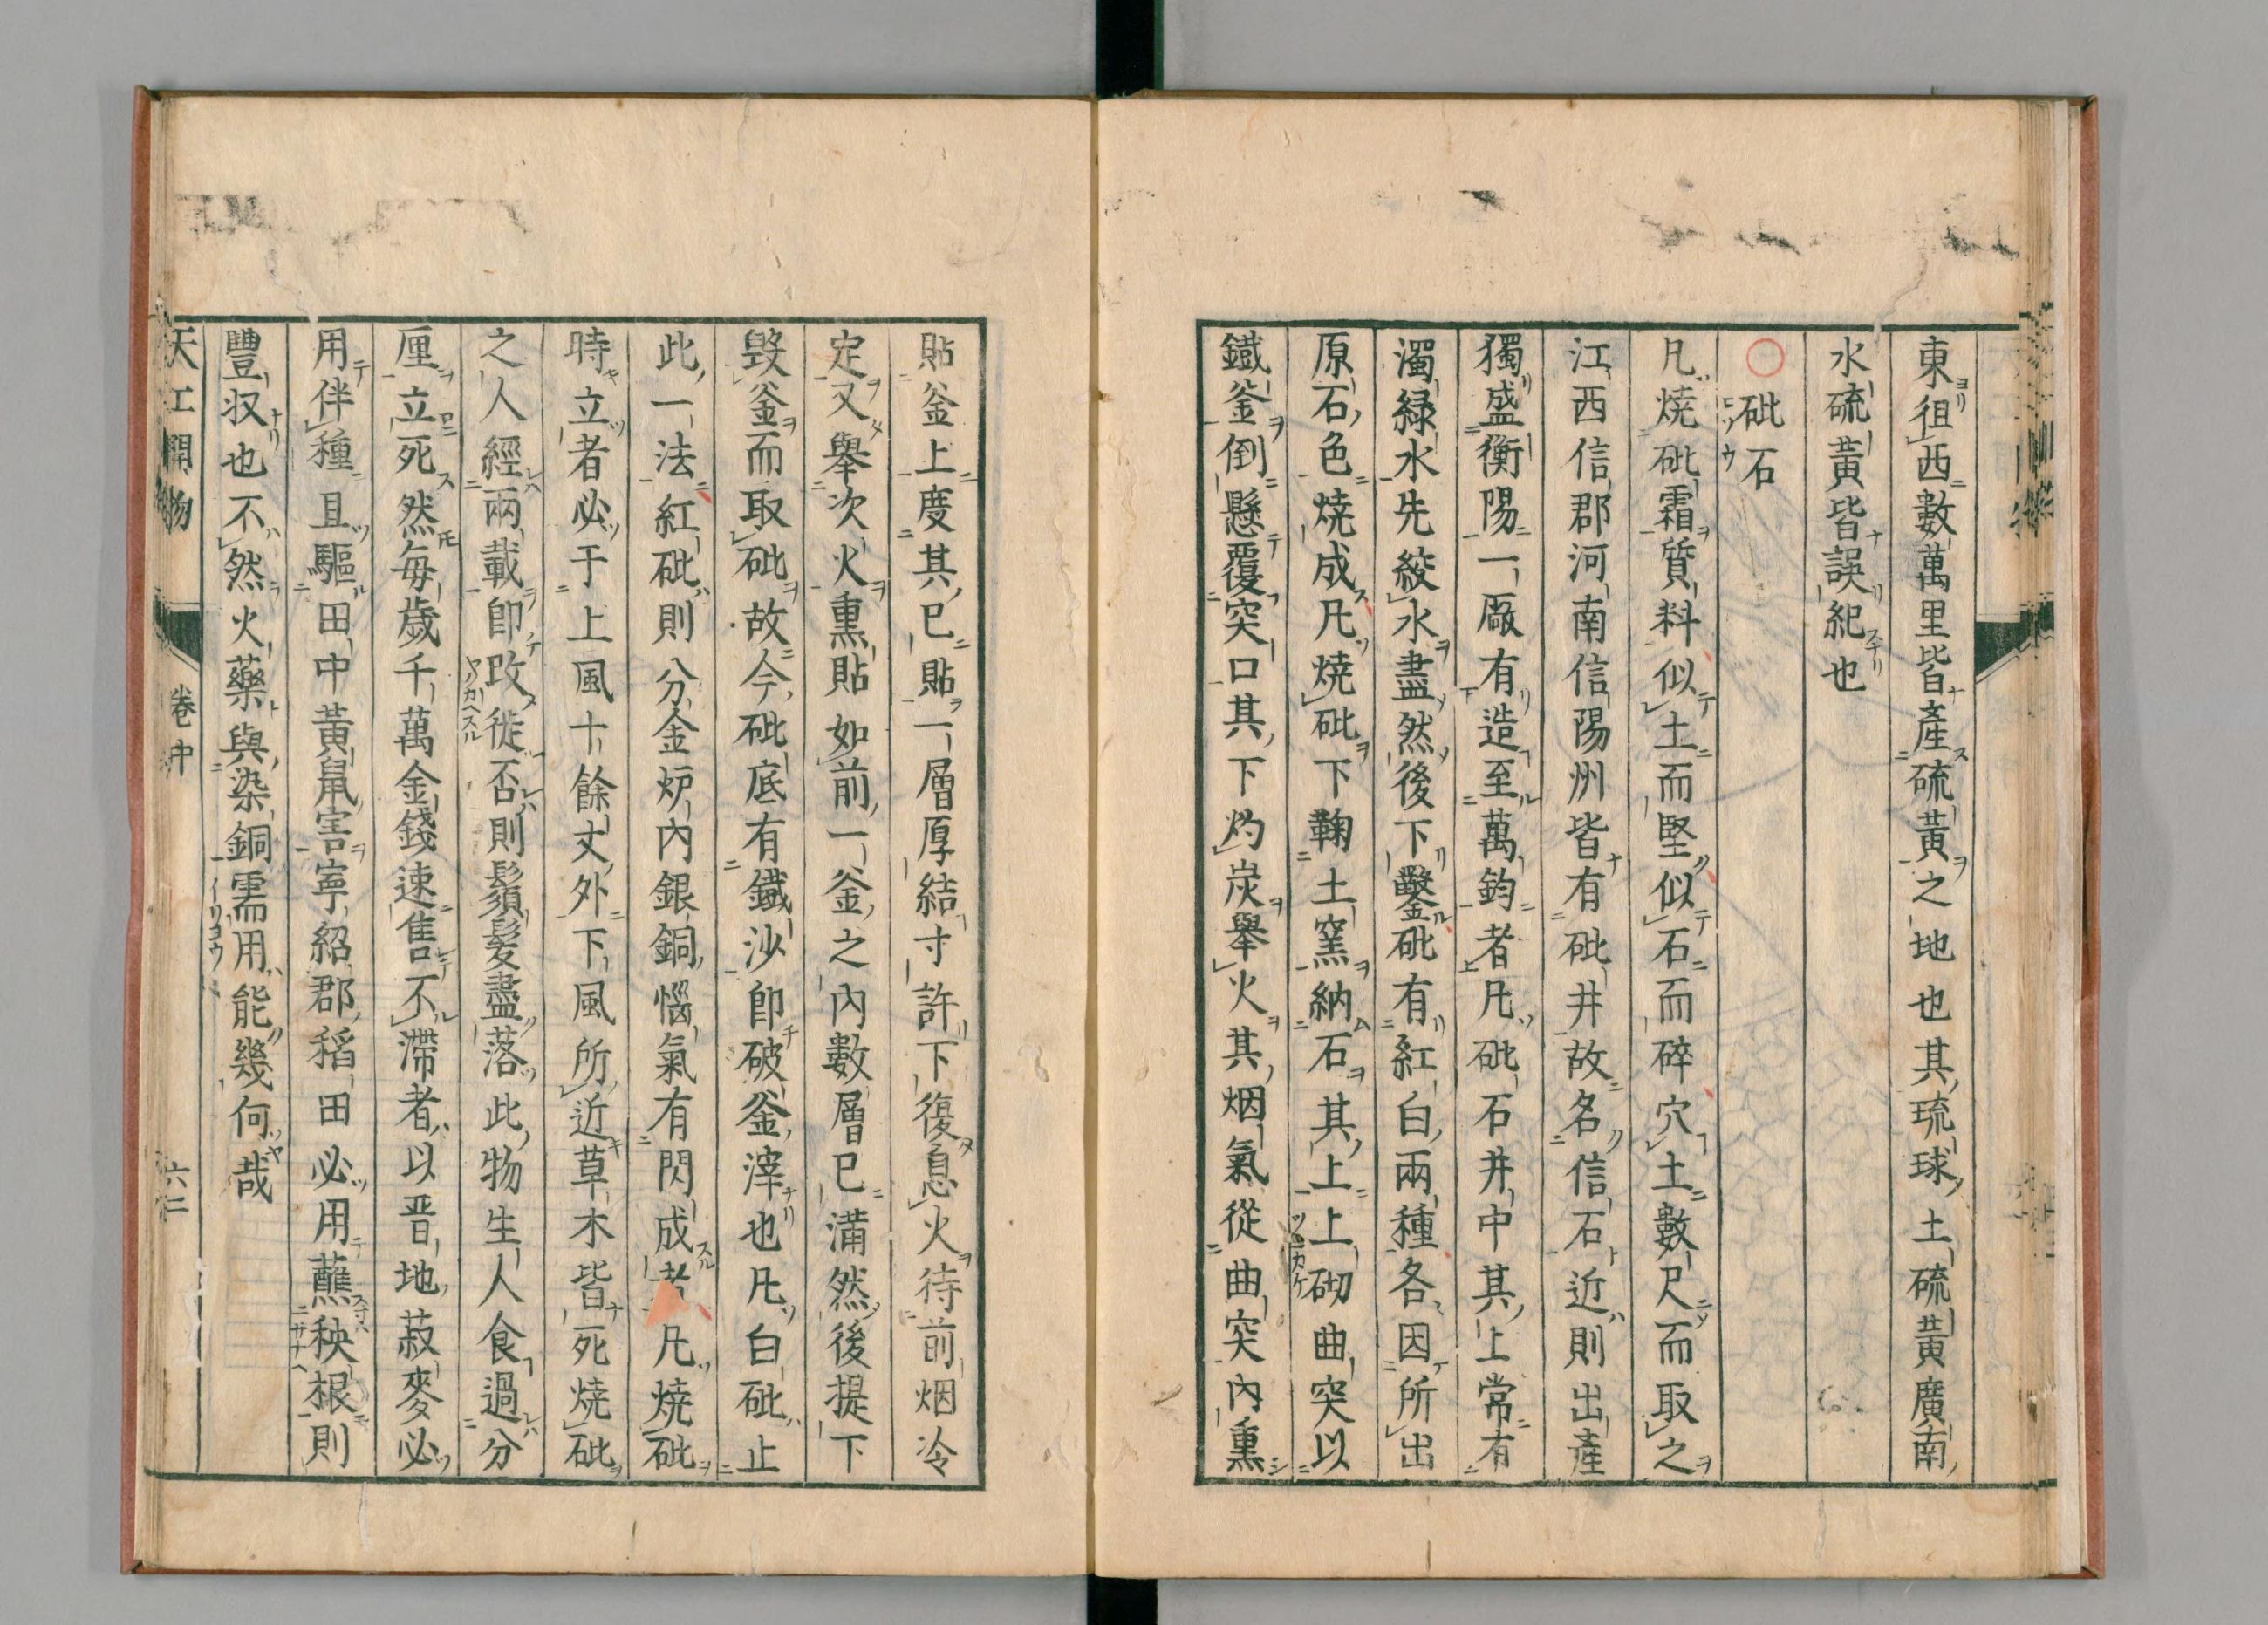 東徂西數萬里皆產硫黃之地也其琉球土硫黃廣南
水硫黃皆誤紀也
○砒石
凡燒砒霜質料似土而堅似石而碎穴土數尺而取之
江西信郡河南信陽州皆有砒井故名信石近則出產
獨盛衡陽一厰有造至萬鈞者凡砒石井中其上常有
濁緑水先絞水盡然後下鑿砒有紅白兩種各因所出
原石色燒成凡燒砒下鞠土窯納石其上上砌曲突以
鐵釜倒懸覆突口其下灼炭舉火其烟氣從曲突內熏
貼釜上度其已貼一層厚結寸許下復息火待前烟冷
定又舉次火熏貼如前一釜之內數層已滿然後提下
毀釜而取砒故今砒底有鐵沙卽破釜滓也凡白砒止
此一法紅砒則分金炉內銀銅惱氣有閃成者凡燒砒
時立者必于上風十餘丈外下風所近草木皆死燒砒
之人經兩載卽改徙否則鬚髮盡落此物生人食過分
厘立死然每歲千萬金錢速售不滯者以晋地菽麥必
用伴種且驅田中黃鼠害寧紹郡稻田必用蘸秧根則
豐収也不然火藥與染銅需用能幾何哉
天工開物 卷中 六二